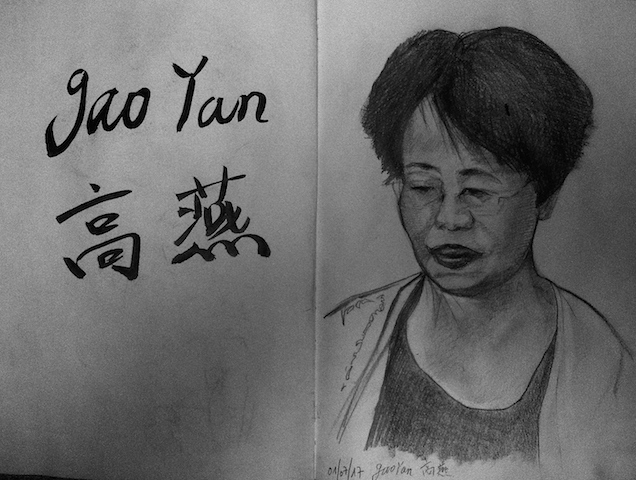 gao Yan
高燕
01/07/17 gao Yan 高燕